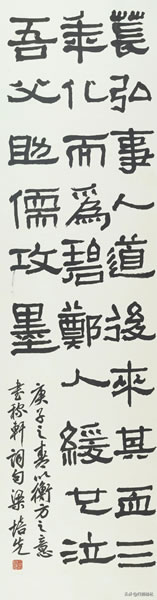 萇弘事人道後來其血三
秊化而爲碧鄭人緩也泣
吾父助儒攻墨
庚子之春以衡方之意
書稼軒詞句梁培先